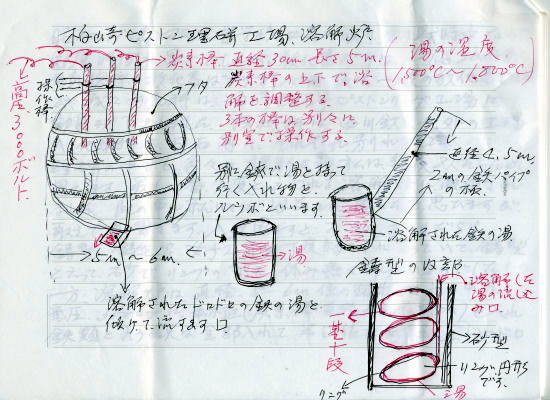 柏崎ピストン理研工場、溶解炉
炭素棒 直径30cm長さ5m.
炭素棒の上下で溶
解を調整する。
3本の棒は別々に
別室で操作する。
(湯の温度
1,500°C〜1,800°C)
操作棒
フタ
高圧3,000ボルト.
別に鉄で湯を持って
行く入れ物を、
ルツボといいます.
湯
直径4.5m.
2mの鉄パイプ
の柄.
溶解された鉄の湯.
5m〜6m.
溶解されたドロドロの鉄の湯を
傾けて流す口
鋳型の内部
溶解した
湯の流し込
み口.
一基十段
砂型
円形
です.
リング
湯